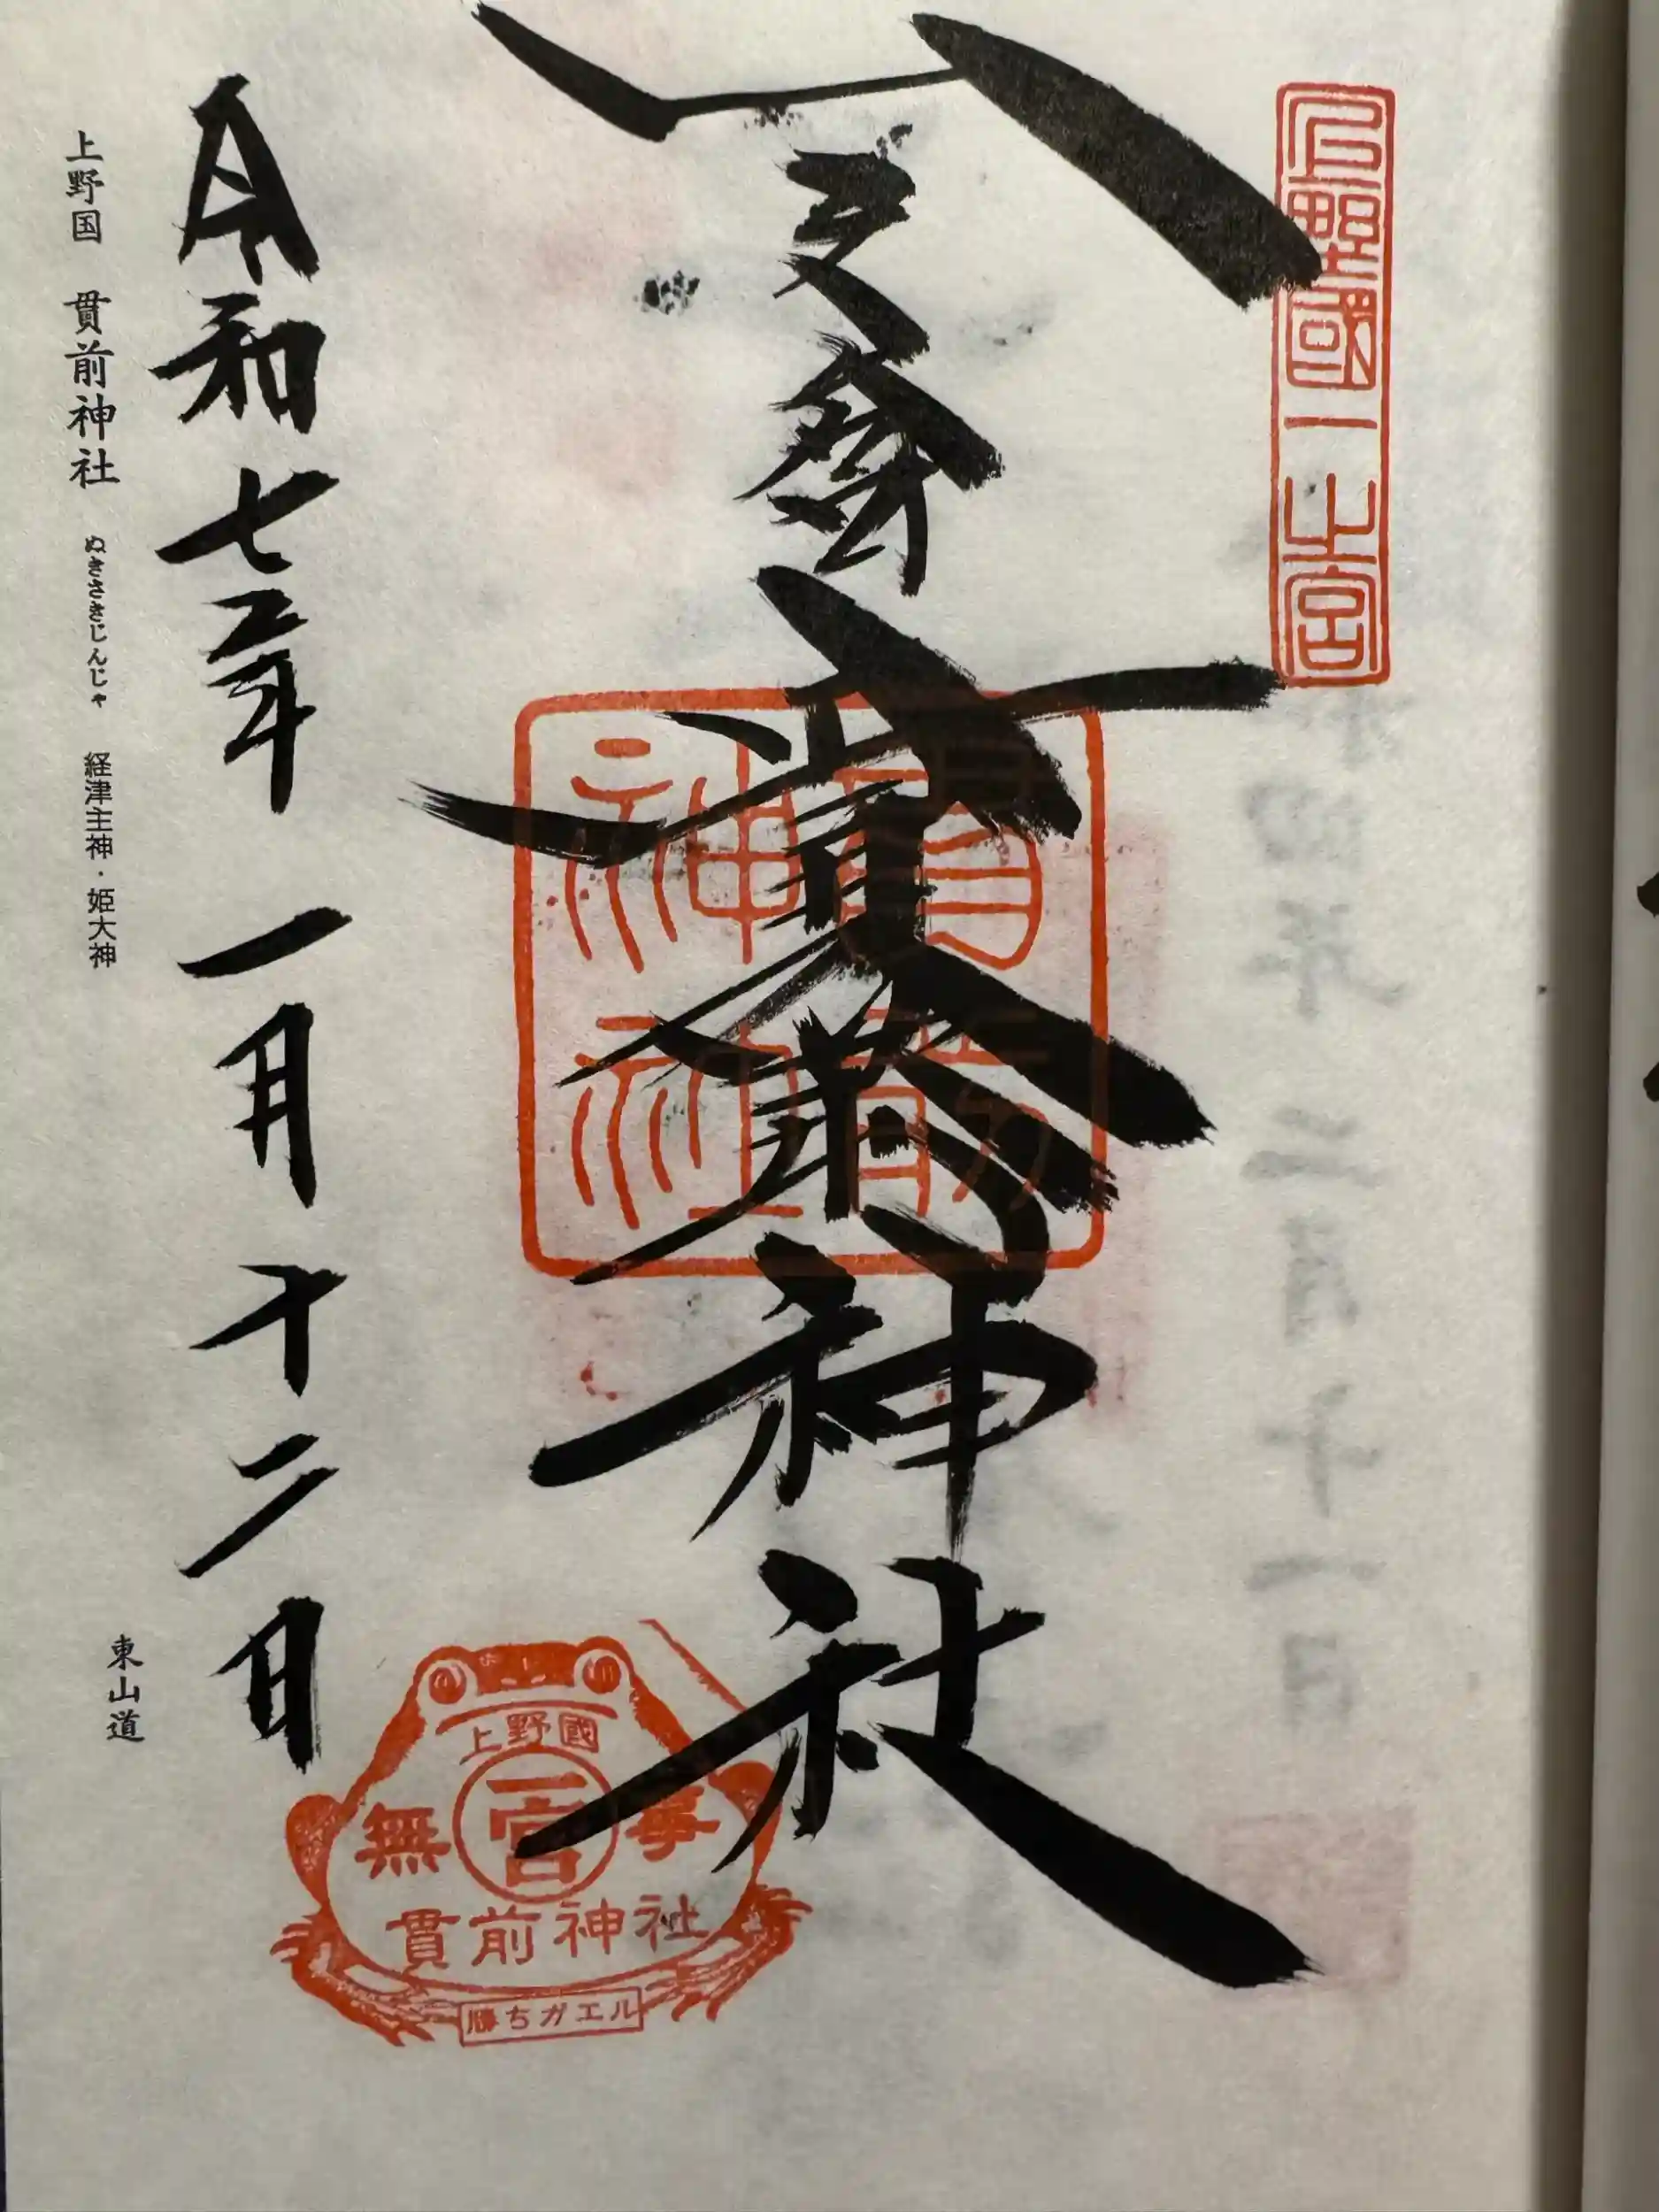 上野國一之宮
一之宮貫前神社
貫前
神社
上野國
無事
一宮
貫前神社
勝ちガエル
令和七年一月十二日
上野国 貫前神社 ぬきさきじんじゃ 経津主神・姫大神
東山道